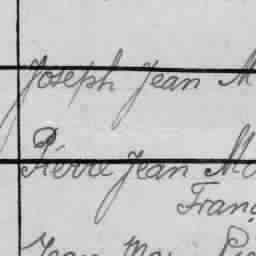 Joseph Jean M
Pierre Jean Ma
Franç
Jean Mari Pie